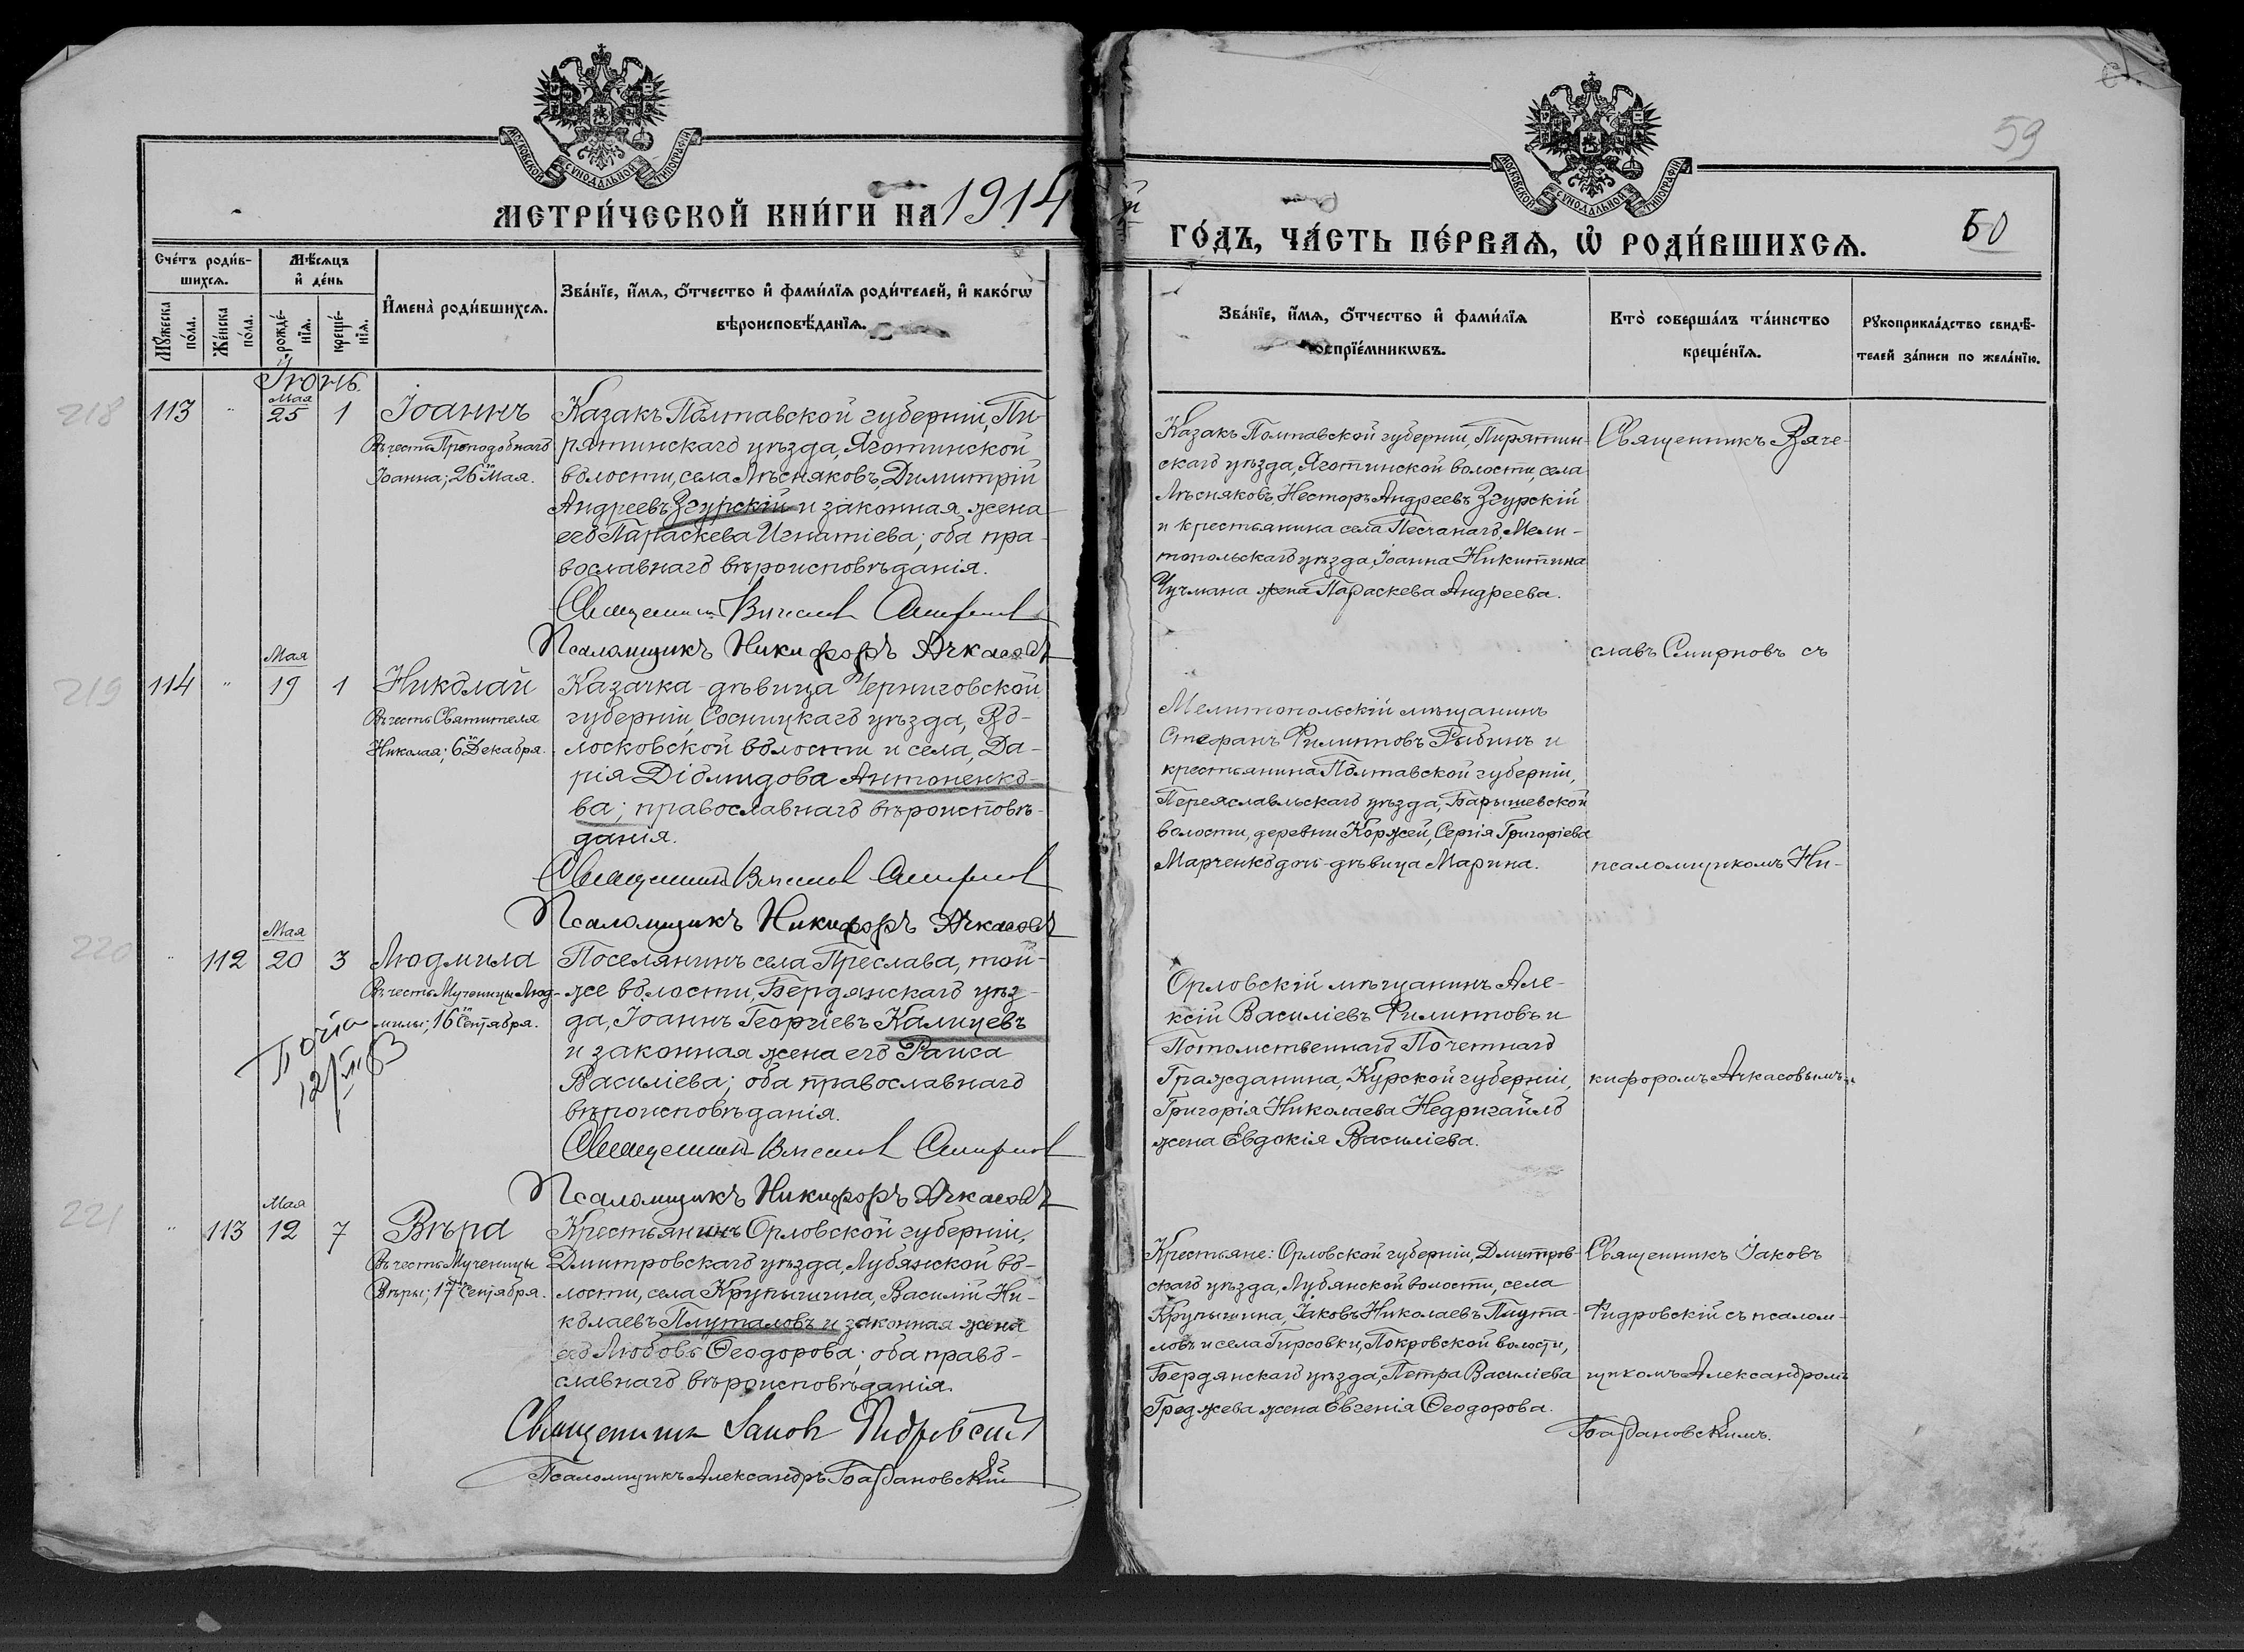 МОСКОВСКОЙ СѴНОДАЛЬНОЙ ТИПОГРАФІИ
МЕТРИ́ЧЕСКОЙ КНИ́ГИ НА 1914
Сче́тъ роди́в-
шихсѧ.
Мѣ́сѧцъ
и҆ де́нь
Мꙋ́жеска
по́ла.
Же́нска
по́ла.
рожде́-
нїѧ.
креще́-
нїѧ.
И҆мена̀ роди́вшихсѧ.
Зва́нїе, и҆́мѧ, ѻ҆́тчество и҆ фами́лїѧ роди́телей, и҆ како́гѡ
вѣроисповѣ́данїѧ.
Іюнь.
218
113
"
Мая
25
1
Іоаннъ
Въ честь Преподобнаго
Іоанна; 26го Мая.
Казакъ Полтавской губерніи, Пи-
рятинскаго уѣзда, Яготинской
волости, села Лѣсняковъ, Димитрій
Андреевъ Згурскій и законная жена
его Параскева Игнатіева; оба пра-
вославнаго вѣроисповѣданія.
Священникъ Вячеславъ Смирновъ
Псаломщикъ Никифоръ Ачкасовъ
219
114
"
Мая
19
1
Николай
Въ честь Святителя
Николая; 6го Декабря.
Казачка-дѣвица Черниговской
губерніи, Сосницкаго уѣзда, Во-
лосковской волости и села, Да-
рія Діомидова Антоненко-
ва; православнаго вѣроисповѣ-
данія.
Священникъ Вячеславъ Смирновъ
Псаломщикъ Никифоръ Ачкасовъ
220
"
112
Мая
20
3
Людмила
Въ честь Мученицы Люд-
милы; 16го Сентября.
12/II 63
Поселянинъ села Преслава, той-
же волости, Бердянскаго уѣз-
да, Іоаннъ Георгіевъ Калицевъ
и законная жена его Раиса
Василіева; оба православнаго
вѣроисповѣданія.
Священникъ Вячеславъ Смирновъ
Псаломщикъ Никифоръ Ачкасовъ
221
"
113
Мая
12
7
Вѣра
Въ честь Мученицы
Вѣры; 17го Сентября.
Крестьянинъ Орловской губерніи,
Дмитровскаго уѣзда, Лубянской во-
лости, села Крупышина, Василій Ни-
колаевъ Плуталовъ и законная жена
его Любовь Ѳеодорова; оба право-
славнаго вѣроисповѣданія.
Священникъ Іаковъ Фидровскій
Псаломщикъ Александръ Богдановскій
59
50
МОСКОВСКОЙ СѴНОДАЛЬНОЙ ТИПОГРАФІИ
й ГО́ДЪ, ЧА́СТЬ ПЕ́РВАѦ, Ѡ҆ РОДИ́ВШИХСѦ.
Зва́нїе, и҆́мѧ, ѻ҆́тчество и҆ фами́лїѧ
воспрїе́мникѡвъ.
Кто̀ соверша́лъ та́инство
креще́нїѧ.
Рꙋкоприкла́дство свидѣ́-
телей за́писи по жела́нїю.
Казакъ Полтавской губерніи, Пирятин-
скаго уѣзда, Яготинской волости, села
Лѣсняковъ, Несторъ Андреевъ Згурскій
и крестьянина села Песчанаго, Мели-
топольскаго уѣзда, Іоанна Никитина
Чучмана жена Параскева Андреева.
Священникъ Вяче-
славъ Смирновъ съ
Мелитопольскій мѣщанинъ
Стефанъ Филипповъ Рыбинъ и
крестьянина Полтавской губерніи,
Переяславльскаго уѣзда, Барышевской
волости, деревни Коржей, Сергія Григоріева
Марченко дочь-дѣвица Марина.
псаломщикомъ Ни-
Орловскій мѣщанинъ Але-
ксій Василіевъ Филипповъ и
Потомственнаго Почетнаго
Гражданина, Курской губерніи,
Григорія Николаева Недригайло
жена Евдокія Василіева.
кифоромъ Ачкасовымъ.
Крестьяне: Орловской губерніи, Дмитров-
скаго уѣзда, Лубянской волости, села
Крупышина, Іаковъ Николаевъ Плута-
ловъ и села Гирсовки, Покровской волости,
Бердянскаго уѣзда, Петра Василіева
Греджева жена Евгенія Ѳеодорова.
Священникъ Іаковъ
Фидровскій съ псалом-
щикомъ Александромъ
Богдановскимъ.